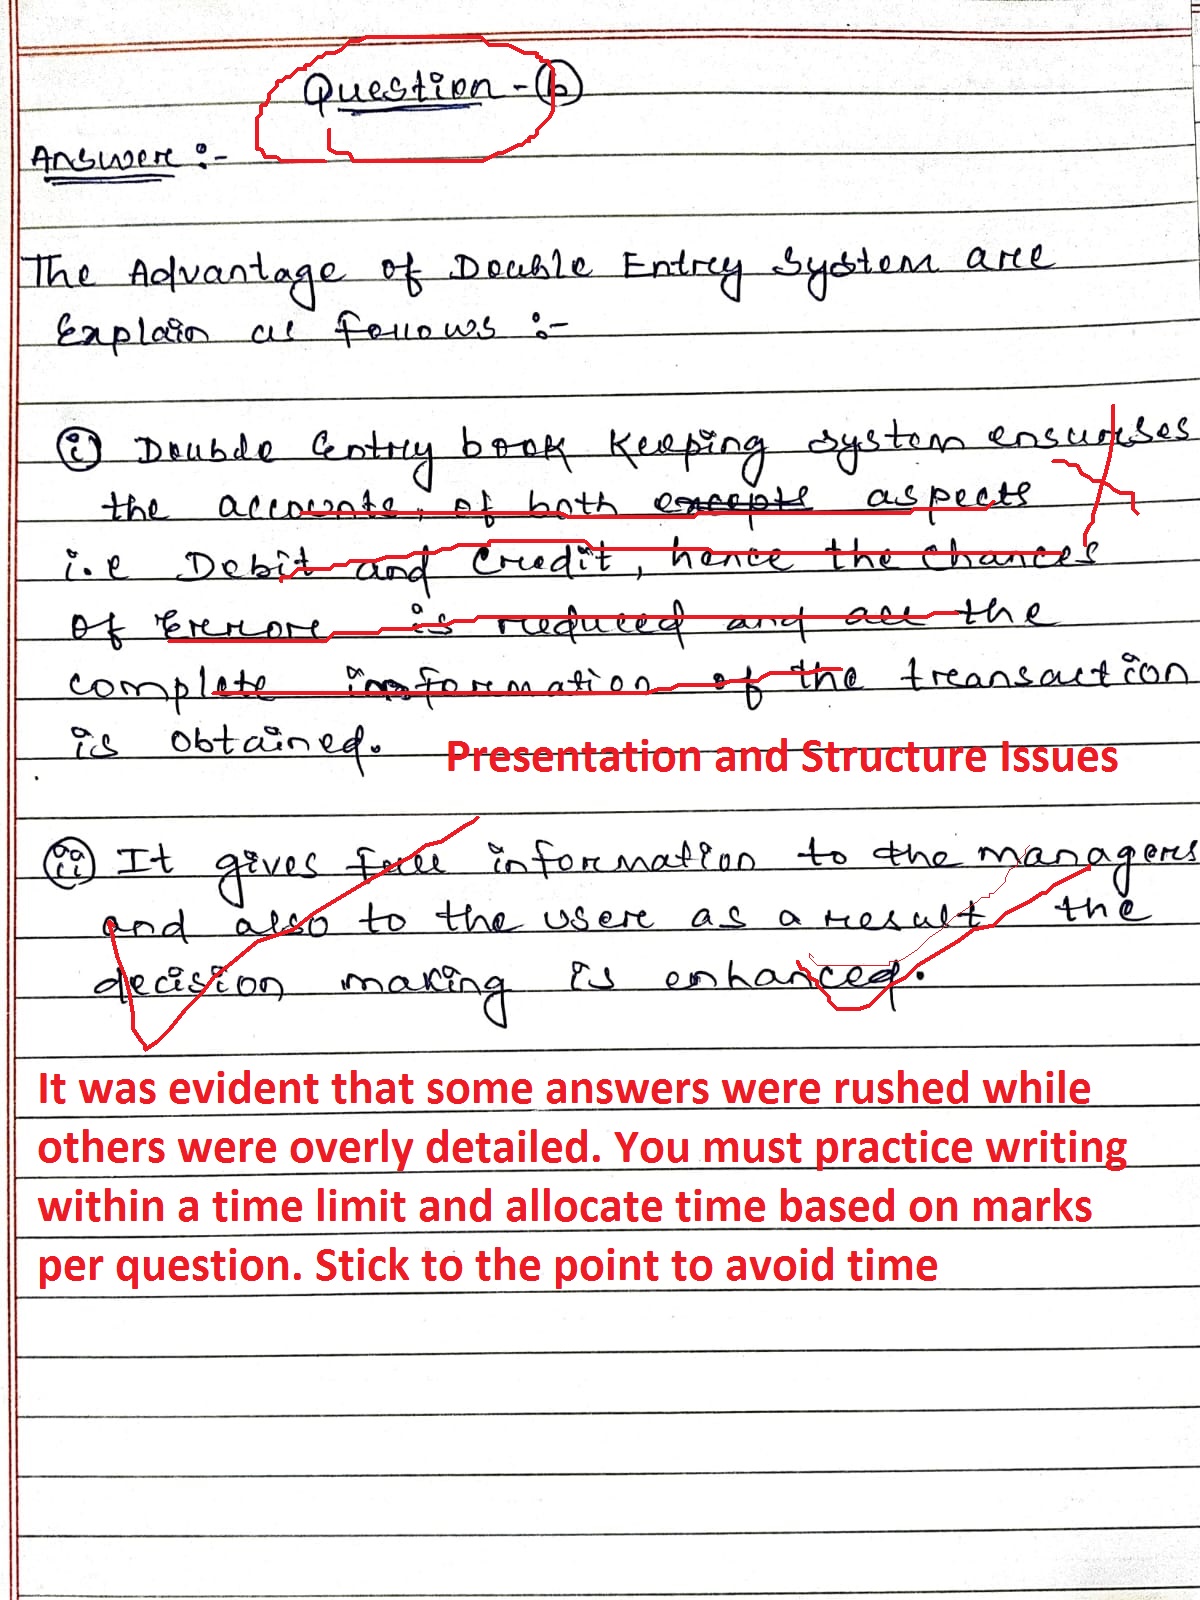 Question - (b)
Answere :-
The Advantage of Double Entry System are
Explain as follows :-
(i) Double Entry book keeping system ensurses
the accounts, of both excepts aspects
i.e Debit and Credit, hence the chances
of Errors is reduced and all the
complete information of the transaction
is obtained.
Presentation and Structure Issues
(ii) It gives full information to the managers
and also to the user as a result the
decision making is enhanced.
It was evident that some answers were rushed while
others were overly detailed. You must practice writing
within a time limit and allocate time based on marks
per question. Stick to the point to avoid time